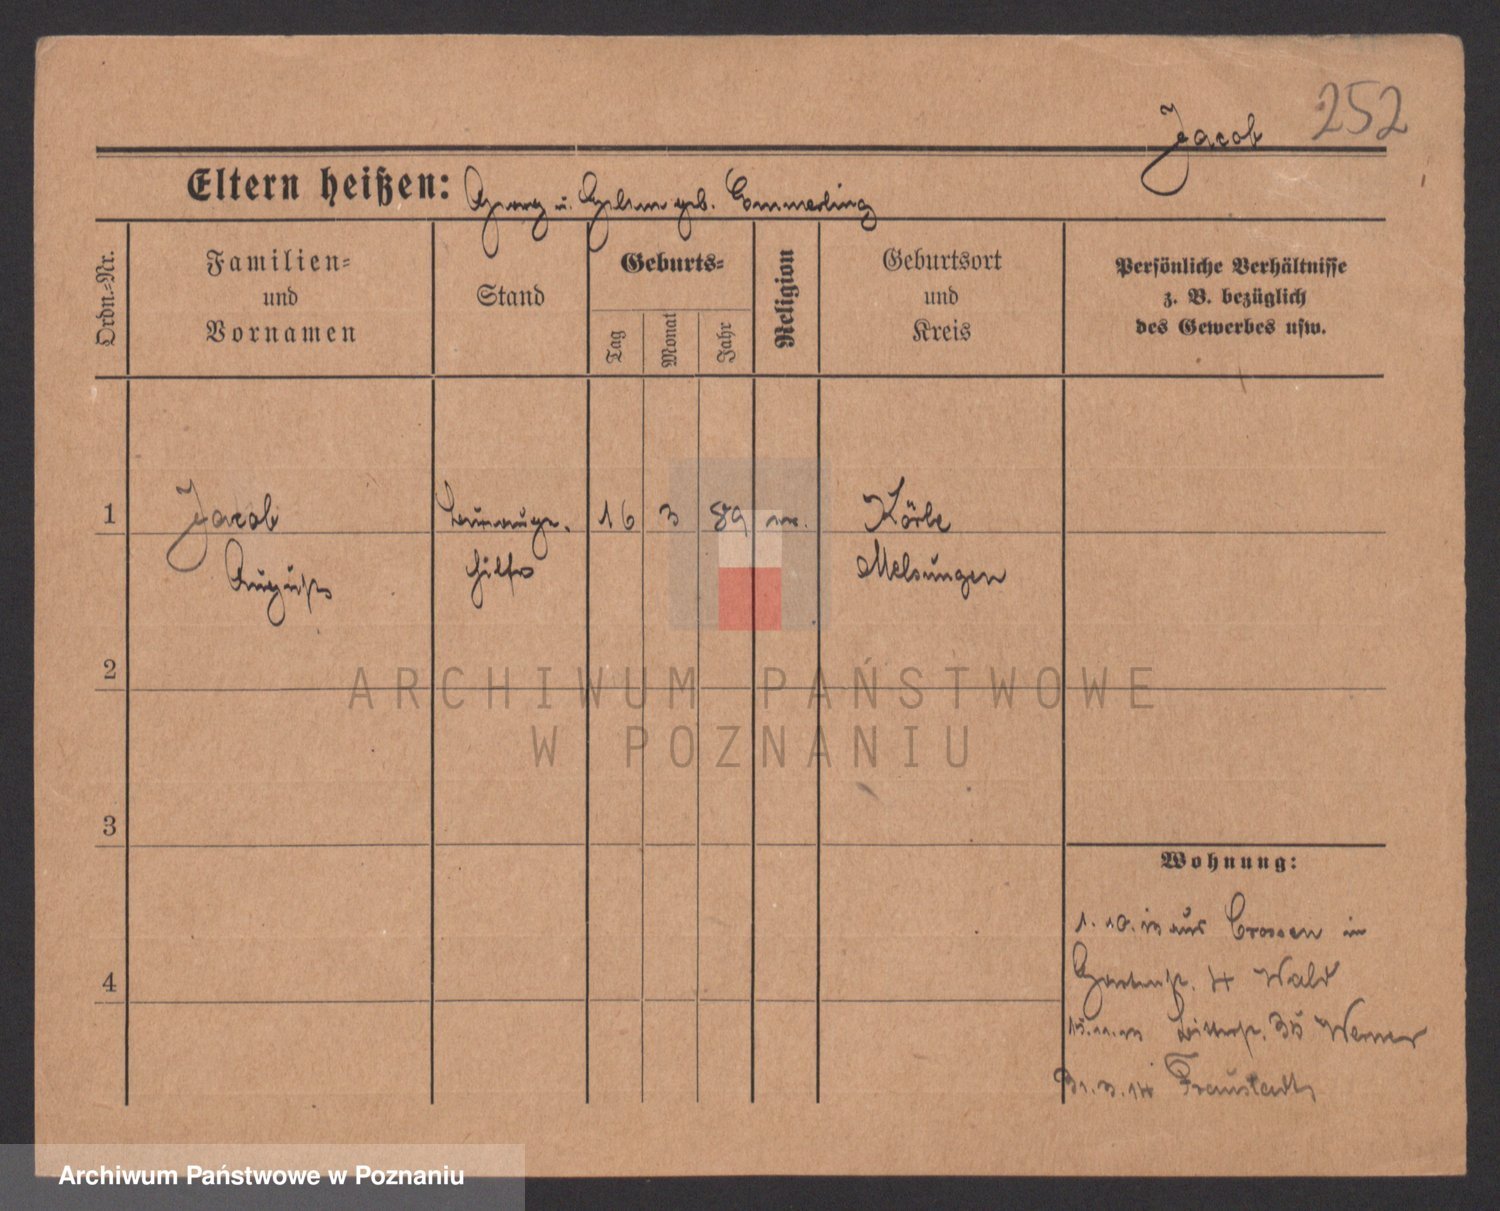 252
Jacob
Eltern heißen: Georg u. geb. Emmerling
Ordn.-Nr.
Familien- und Vornamen
Stand
Geburts-
Tag
Monat
Jahr
Religion
Geburtsort und Kreis
Persönliche Verhältnisse z. B. bezüglich des Gewerbes usw.
1 Jacob 16 3 89 Körle
August Melsungen
2
3
4
Wohnung:
1. 10. 13 aus Crossen in
Gartenstr. 4 Wald
15. 11. 13 35 Werner
31. 3. 14 Fraustadt
ARCHIWUM PAŃSTWOWE
W POZNANIU
Archiwum Państwowe w Poznaniu